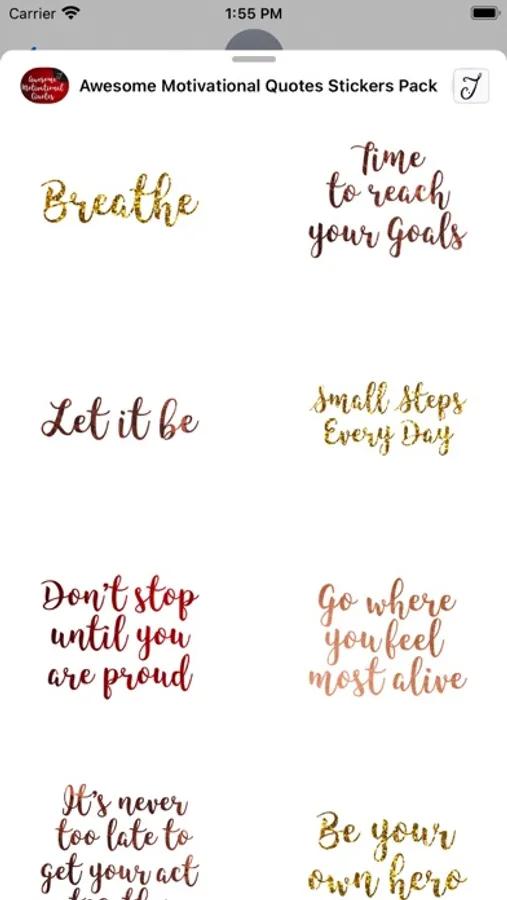 Carrier 1:55 PM
Awesome Motivational Quotes
Awesome Motivational Quotes Stickers Pack
Breathe
Time
to reach
your Goals
Let it be
Small Steps
Every Day
Don't stop
until you
are proud
Go where
you feel
most alive
It's never
too late to
get your act
Be your
own hero